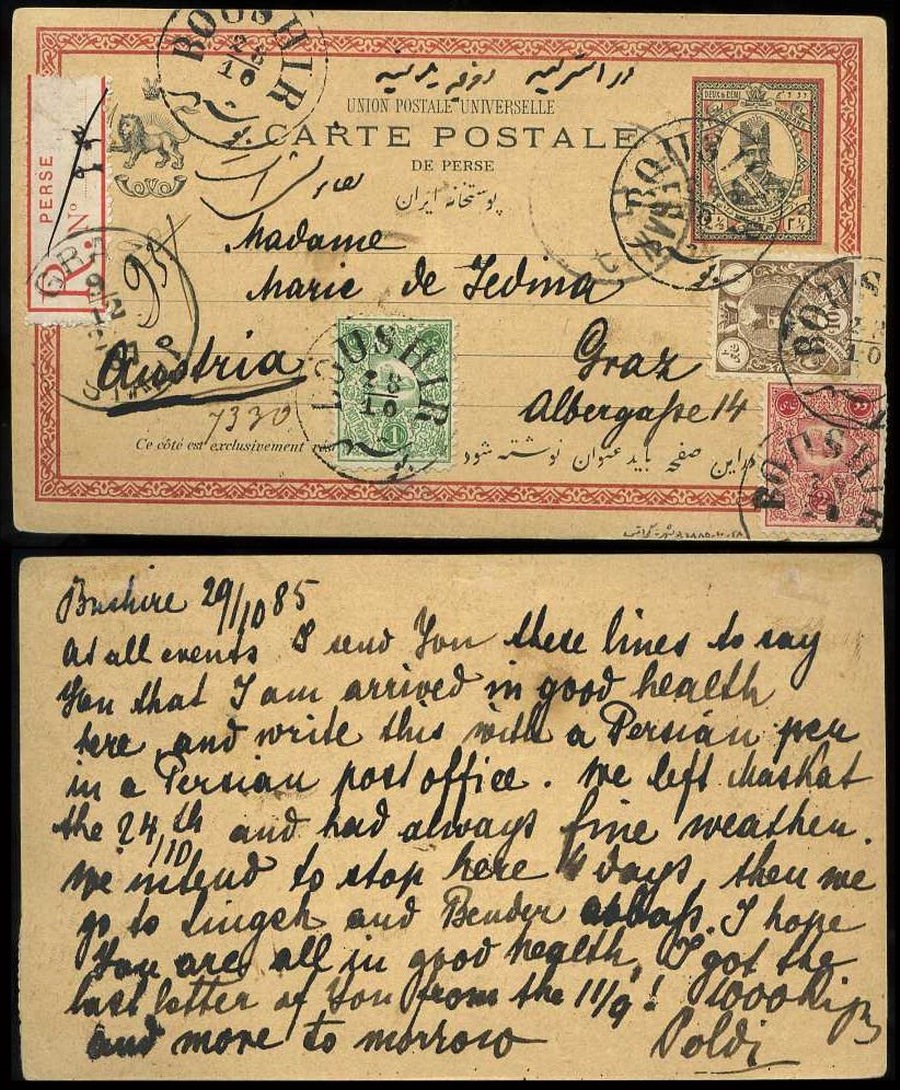 BOOSHIR
28
10
UNION POSTALE UNIVERSELLE
CARTE POSTALE
DE PERSE
پوستخانه ایران
DEUX & DEMI
2½
۲½
PERSE
R. Nº
93
Madame
Marie de Jedina
Austria
Graz
Albergaße 14
7330
BOUSHIR
28
10
1
10
BOUSHIR
10
BOUSHIR
Ce côté est exclusivement
در این صفحه باید عنوان نوشته شود
Bushire 29/10 85
At all events I send You these lines to say
You that I am arrived in good health
here and write this with a Persian pen
in a Persian post office. We left Maskat
the 24th/10 and had always fine weather.
We intend to stop here 4 days, then we
go to Lingeh and Bender abbaß. I hope
You are all in good health, I got the
last letter of You from the 11/9! 1000
and more to morrow Poldi